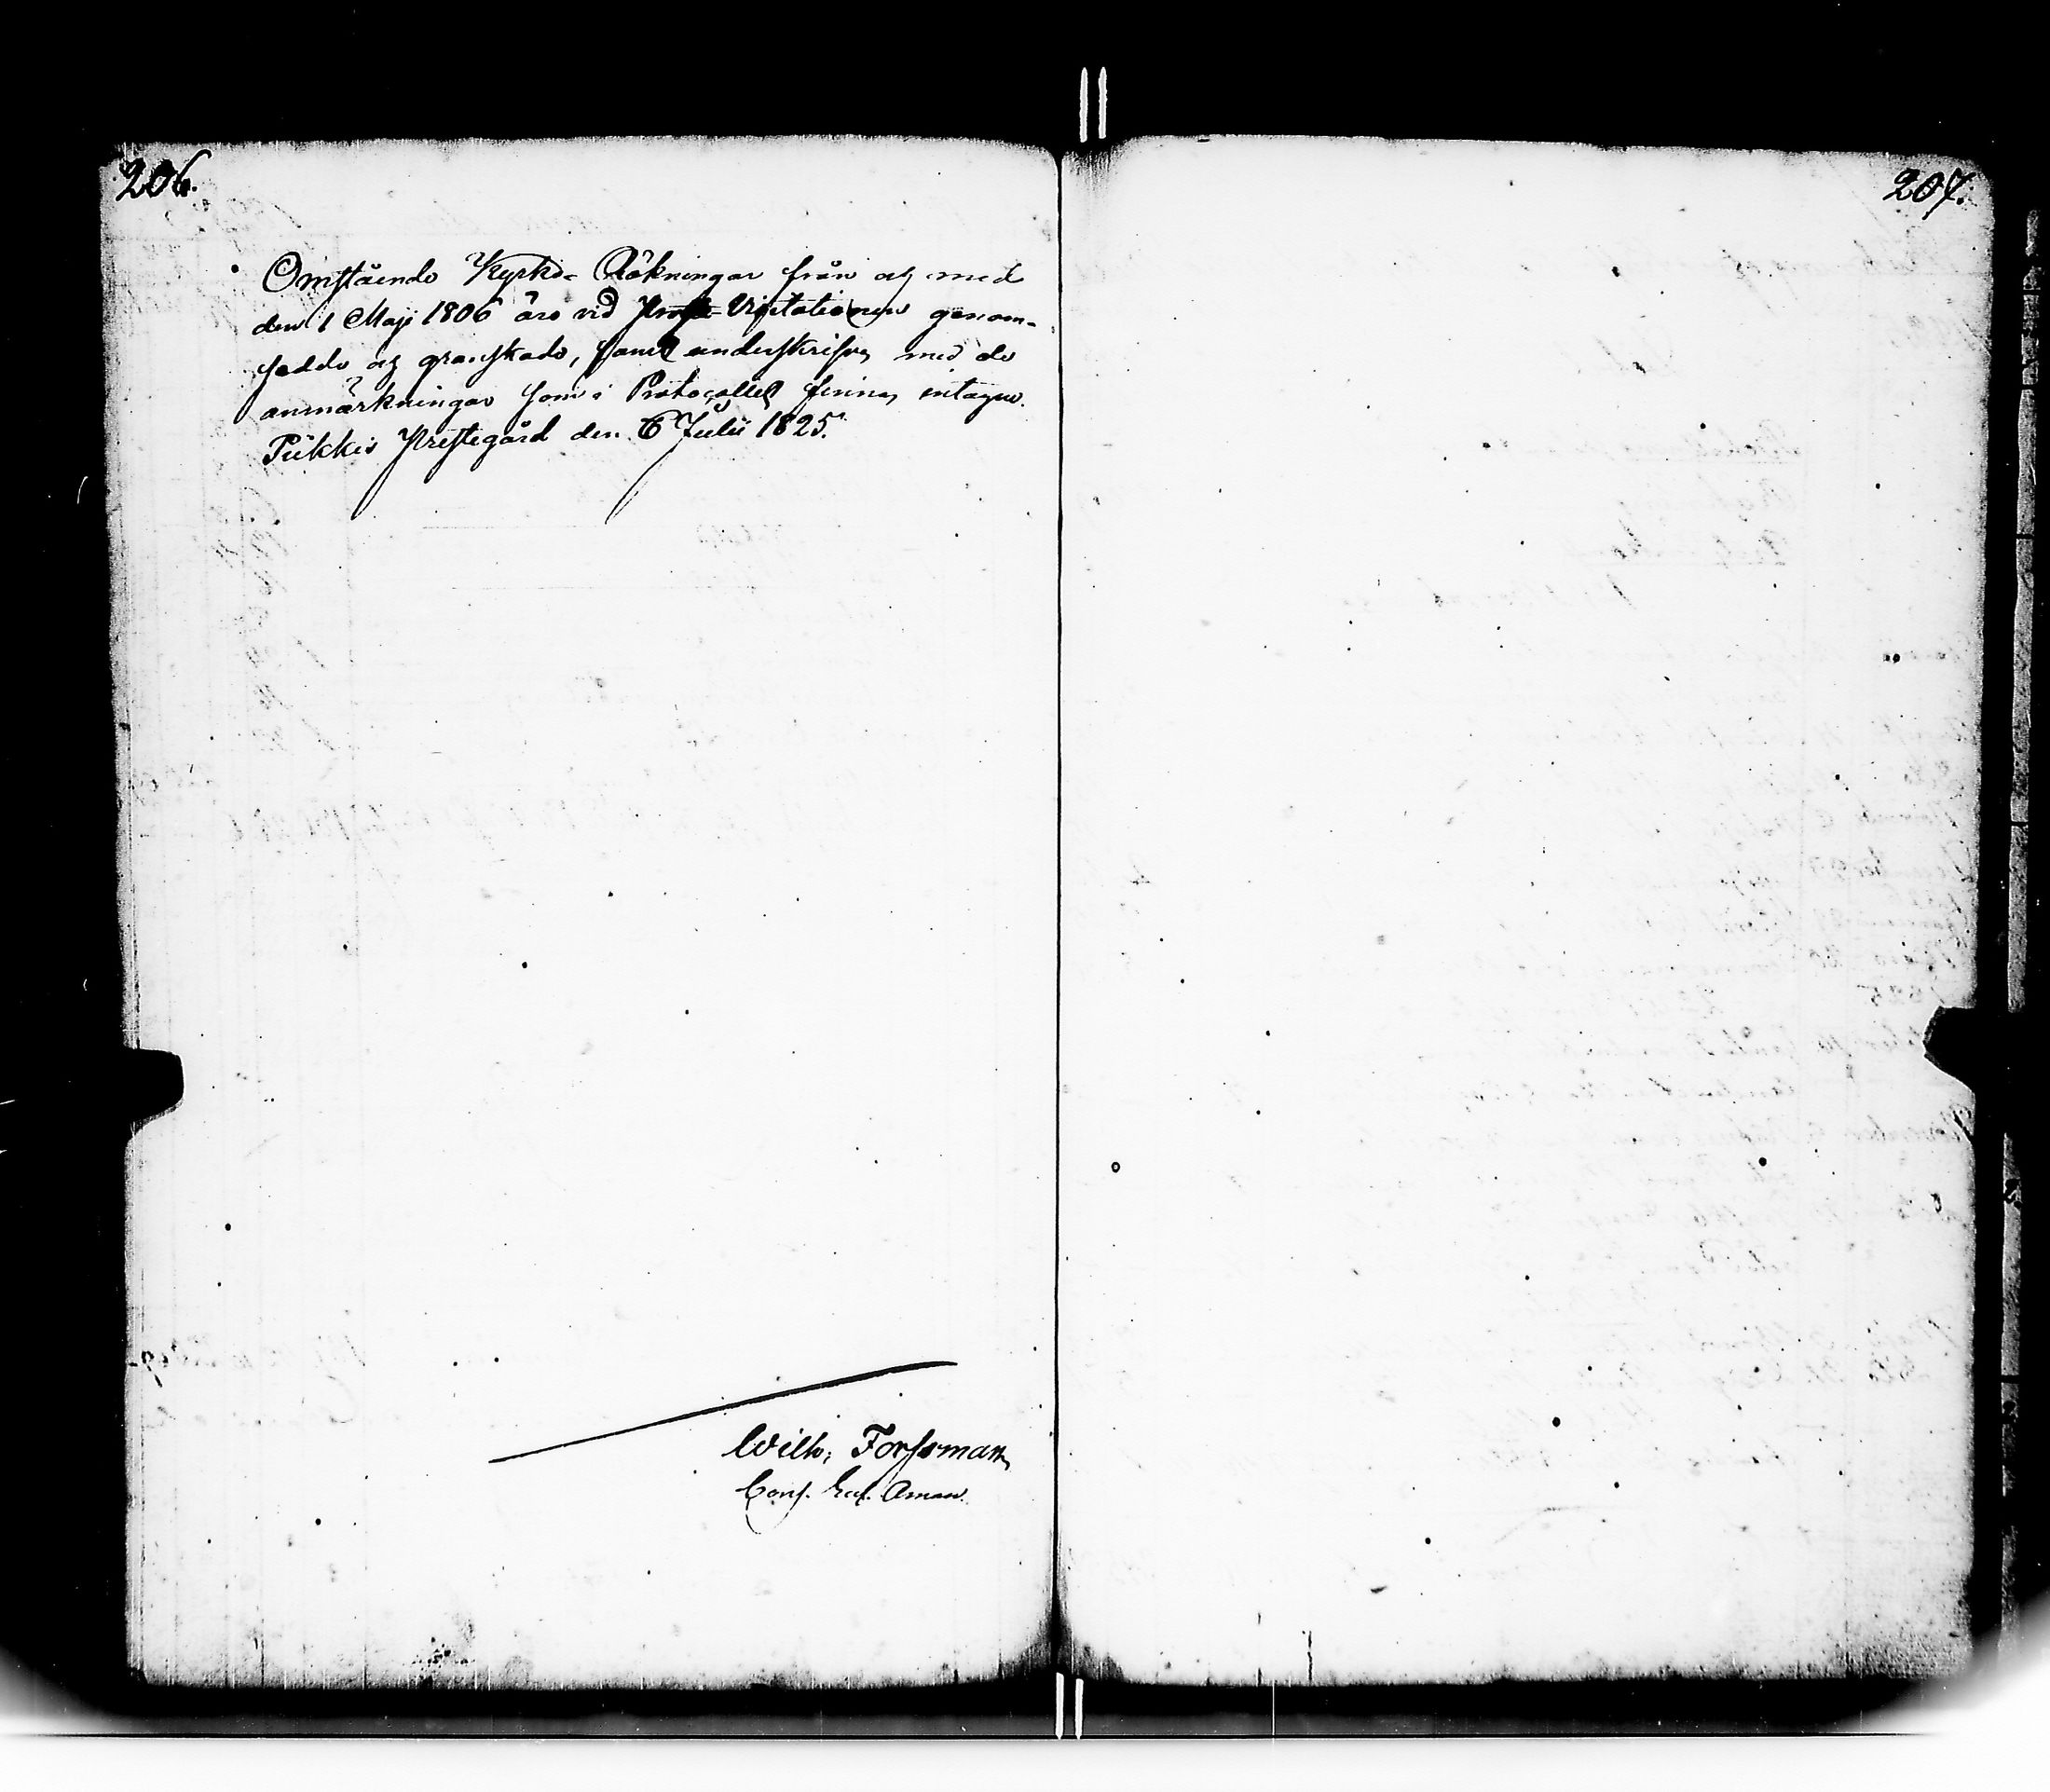 206.
Omstående Kyrko-Räkningar från och med
den 1 Maji 1806 äro vid Prosts-Visitationen genom-
sedde och granskade, samt underskrifvas med de
anmärkningar som i Protocollet finnas intagne.
Pikkis Prestegård den 6 Julii 1825.
Wilh: Forssman
Cons. Eccl. Aman.
207.